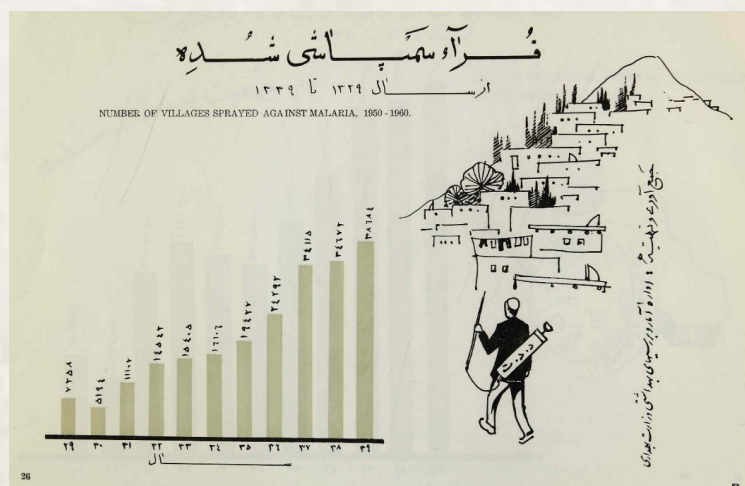 قُرآء سمپاشی شُده
از سال ۱۳۲۹ تا ۱۳۳۹
NUMBER OF VILLAGES SPRAYED AGAINST MALARIA, 1950 - 1960.
۷۲۵۸
۵۱۹٤
۱۱۱۰۲
۱٤۵٤۲
۱۵٤۰۵
۱۶۱۰۶
۱۹٤۲۷
۲٤۲۹۲
۳٤۱۱۵
۳٤۶۷۲
۳۸۶۸٤
۲۹ ۳۰ ۳۱ ۳۲ ۳۳ ۳٤ ۳۵ ۳۶ ۳۷ ۳۸ ۳۹
سال
د.د.ت
جمع آوری و تهیه : اداره آمار و بررسیهای بهداشتی وزارت بهداری
26